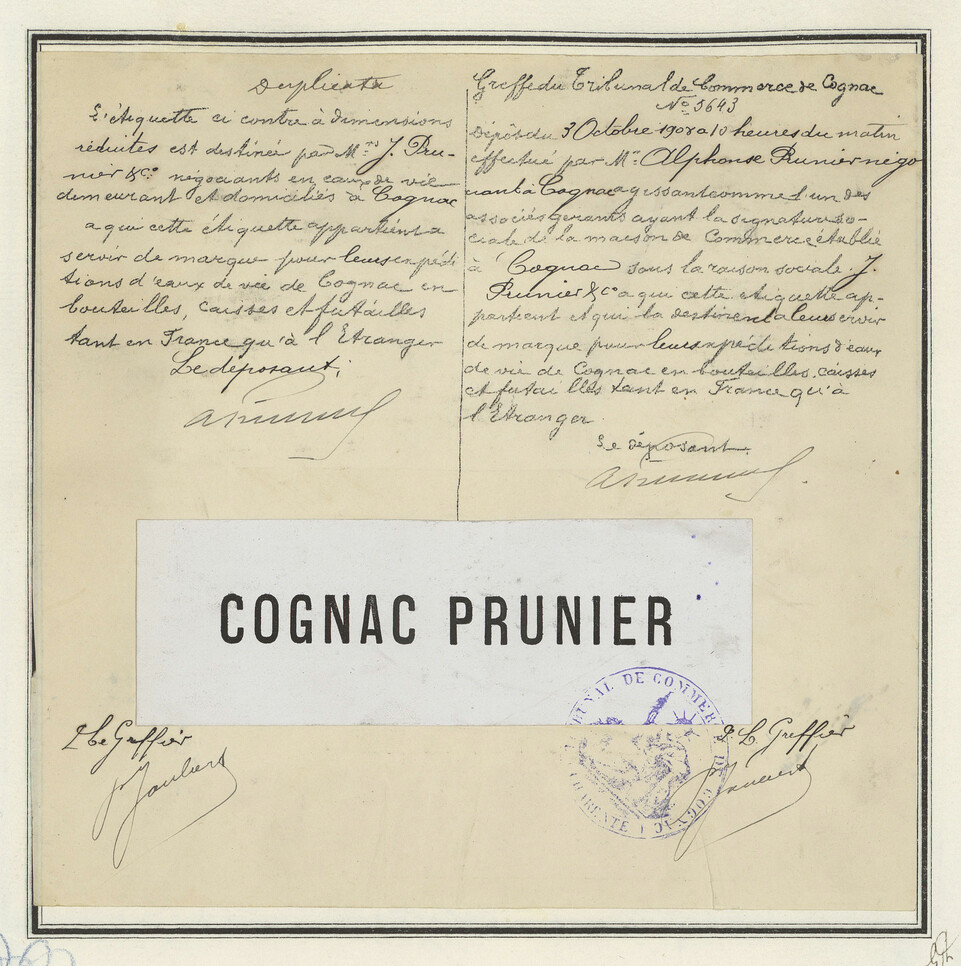 Duplicata
L'étiquette ci contre à dimensions
réduites est destinée par Mrs J. Pru-
nier & Cie négociants en eaux de vie
demeurant et domiciliés à Cognac
a qui cette étiquette appartient a
servir de marque pour leurs expédi
tions d'eaux de vie de Cognac en
bouteilles, caisses et futailles
tant en France qu'à l'Etranger
Le déposant,
Greffe du Tribunal de Commerce de Cognac
No 5643
Dépôt du 3 Octobre a 10 heures du matin
effectué par Mr Alphonse Prunier négo
ciant à Cognac agissant comme l'un des
associés gérants ayant la signature so-
ciale de la maison de Commerce établie
à Cognac sous la raison sociale J.
Prunier & Co a qui cette etiquette ap-
partient et qui la destinent a leur servir
de marque pour leurs expéditions d'eaux
de vie de Cognac en bouteilles, caisses
et futailles tant en France qu'à
l'Etranger
Le déposant.
COGNAC PRUNIER
TRIBUNAL DE COMMERCE DE COGNAC
CHARENTE
P Le Greffier
P Le Greffier